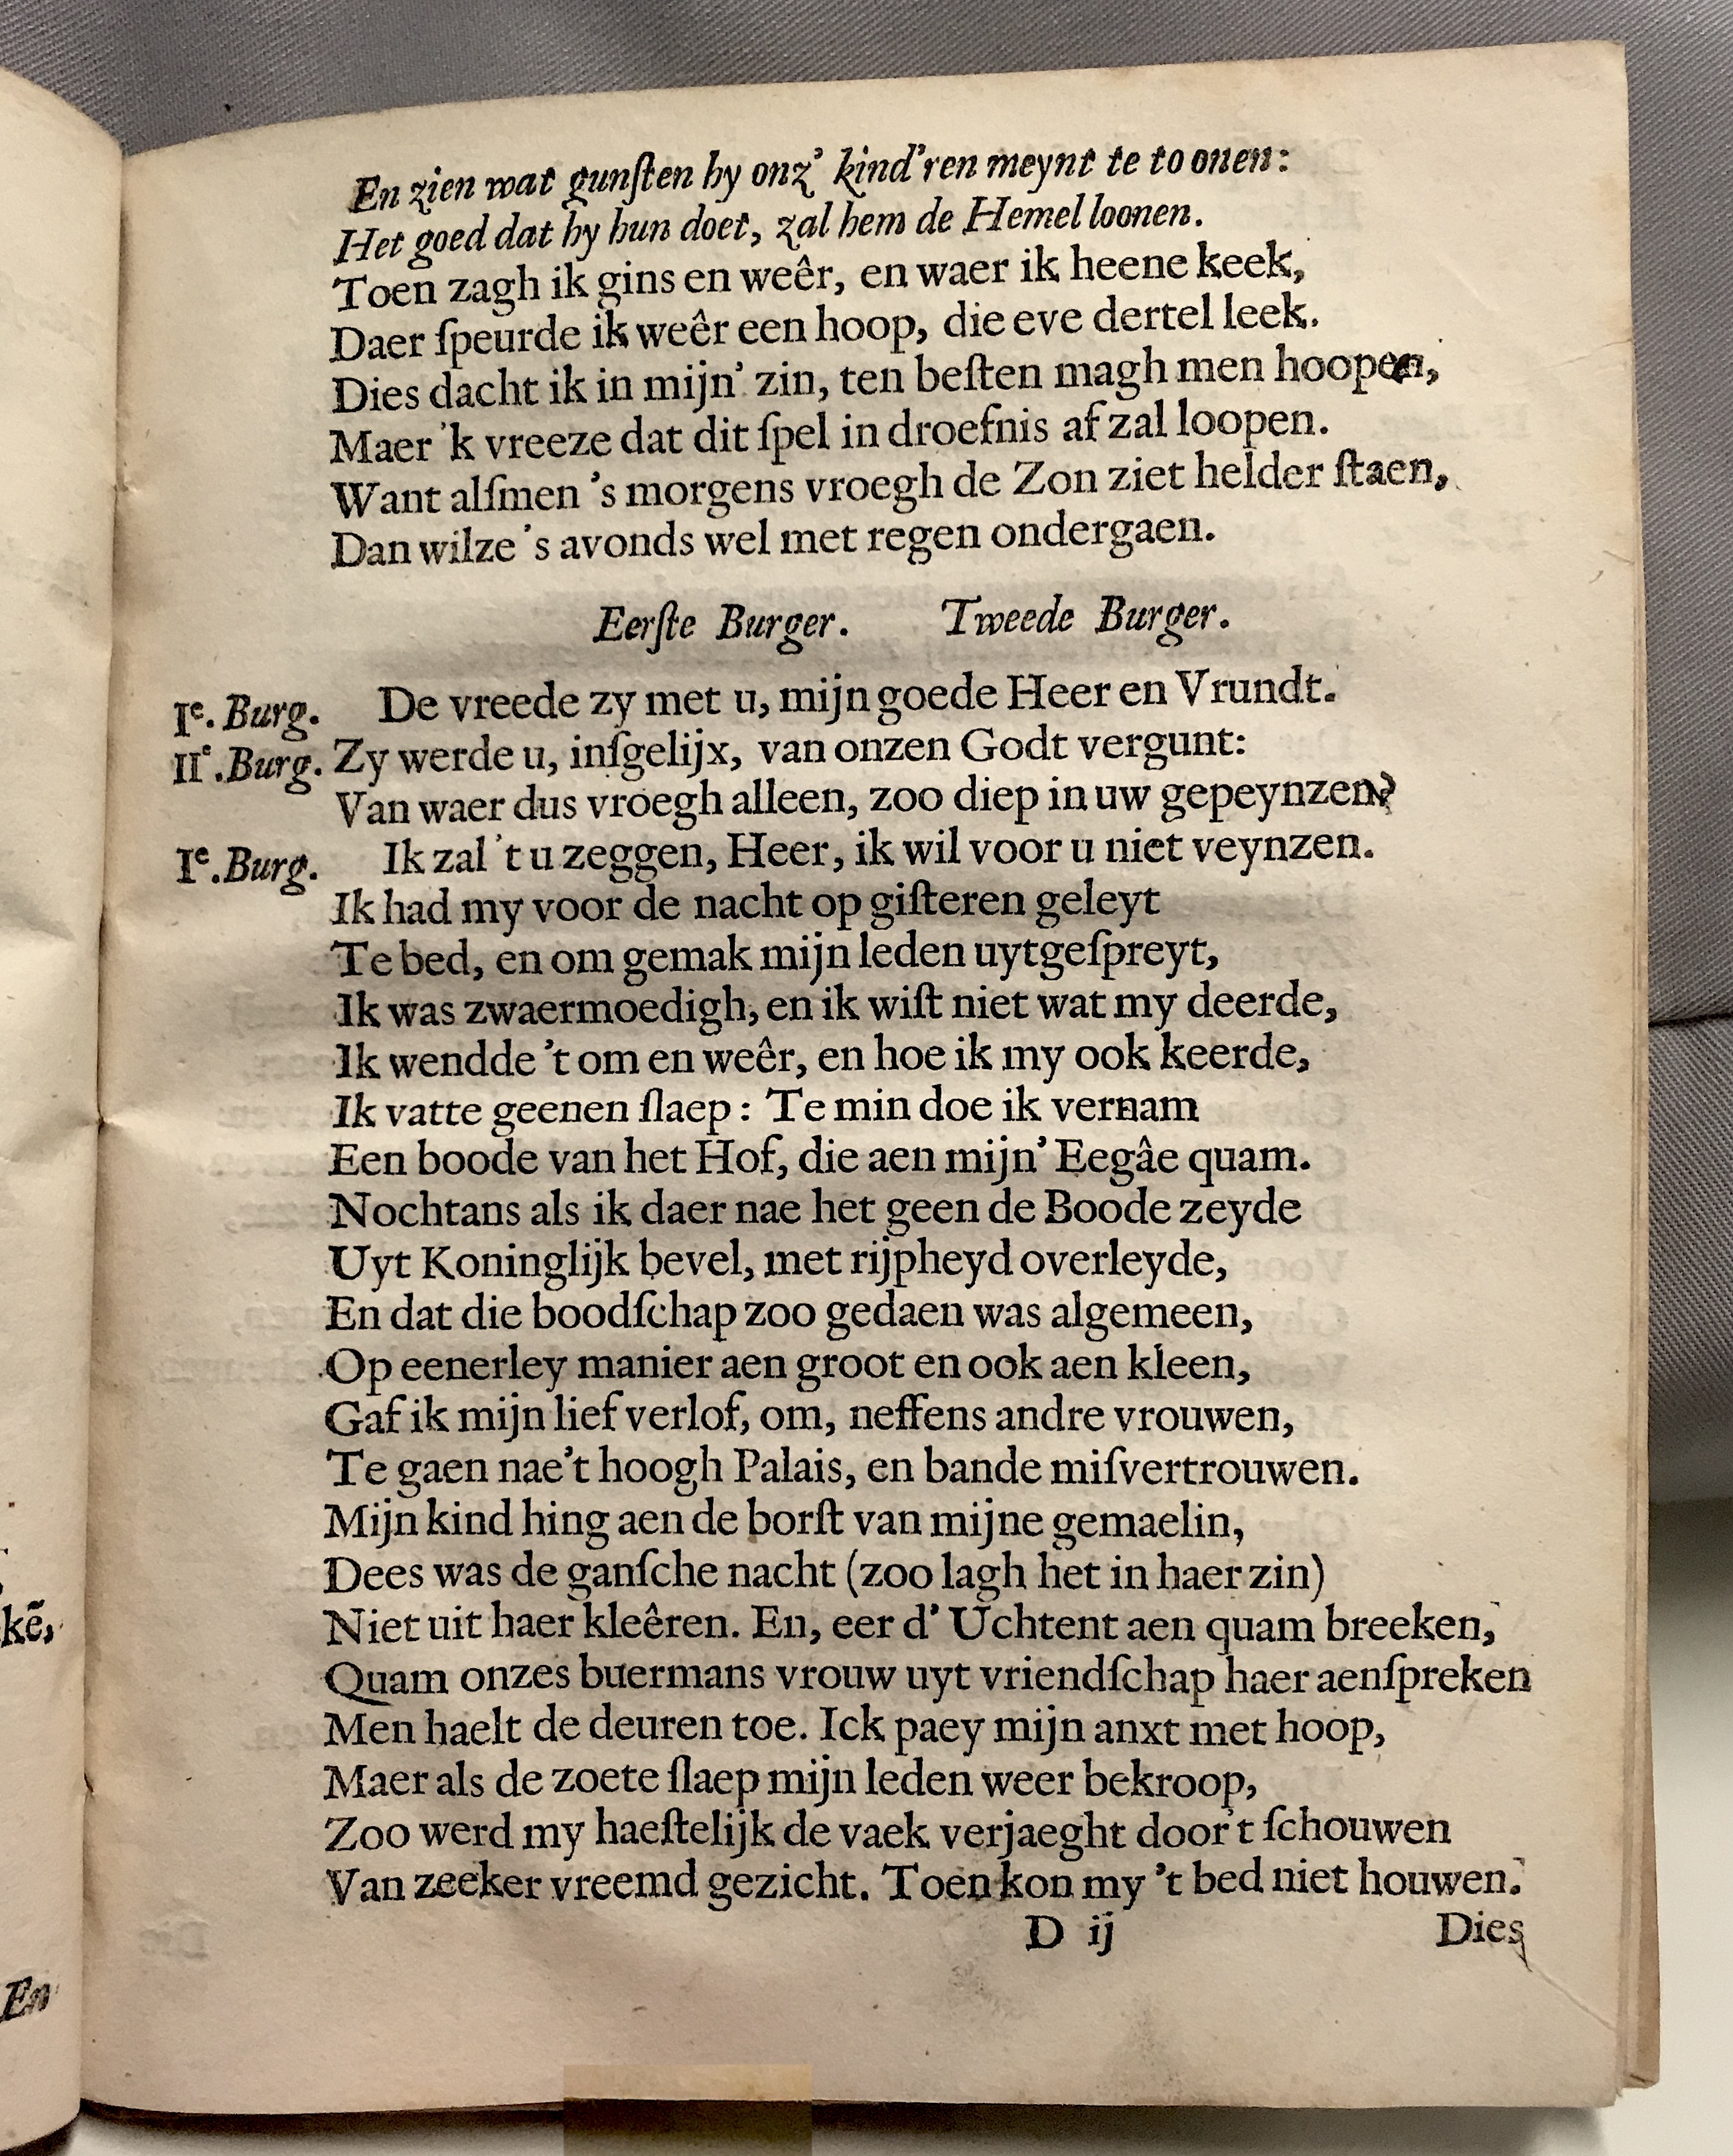 En zien wat gunſten hy onz’ kind’ren meynt te toonen:
Het goed dat hy hun doet, zal hem de Hemel loonen.
Toen zagh ik gins en weêr, en waer ik heene keek,
Daer ſpeurde ik weêr een hoop, die eve dertel leek.
Dies dacht ik in mijn’ zin, ten beſten magh men hoopen,
Maer ’k vreeze dat dit ſpel in droefnis af zal loopen.
Want alſmen ’s morgens vroegh de Zon ziet helder ſtaen,
Dan wilze ’s avonds wel met regen ondergaen.
Eerſte Burger. Tweede Burger.
Iᵉ. Burg. De vreede zy met u, mijn goede Heer en Vrundt.
IIᵉ. Burg. Zy werde u, inſgelijx, van onzen Godt vergunt:
Van waer dus vroegh alleen, zoo diep in uw gepeynzen?
Iᵉ. Burg. Ik zal ’t u zeggen, Heer, ik wil voor u niet veynzen.
Ik had my voor de nacht op giſteren geleyt
Te bed, en om gemak mijn leden uytgeſpreyt,
Ik was zwaermoedigh, en ik wiſt niet wat my deerde,
Ik wendde ’t om en weêr, en hoe ik my ook keerde,
Ik vatte geenen ſlaep: Te min doe ik vernam
Een boode van het Hof, die aen mijn’ Eegâe quam.
Nochtans als ik daer nae het geen de Boode zeyde
Uyt Koninglijk bevel, met rijpheyd overleyde,
En dat die boodſchap zoo gedaen was algemeen,
Op eenerley manier aen groot en ook aen kleen,
Gaf ik mijn lief verlof, om, neffens andre vrouwen,
Te gaen nae’t hoogh Palais, en bande miſvertrouwen.
Mijn kind hing aen de borſt van mijne gemaelin,
Dees was de ganſche nacht (zoo lagh het in haer zin)
Niet uit haer kleêren. En, eer d’ Uchtent aen quam breeken,
Quam onzes buermans vrouw uyt vriendſchap haer aenſpreken
Men haelt de deuren toe. Ick paey mijn anxt met hoop,
Maer als de zoete ſlaep mijn leden weer bekroop,
Zoo werd my haeſtelijk de vaek verjaeght door’t ſchouwen
Van zeeker vreemd gezicht. Toen kon my ’t bed niet houwen.
D ij Dies
kē,
En